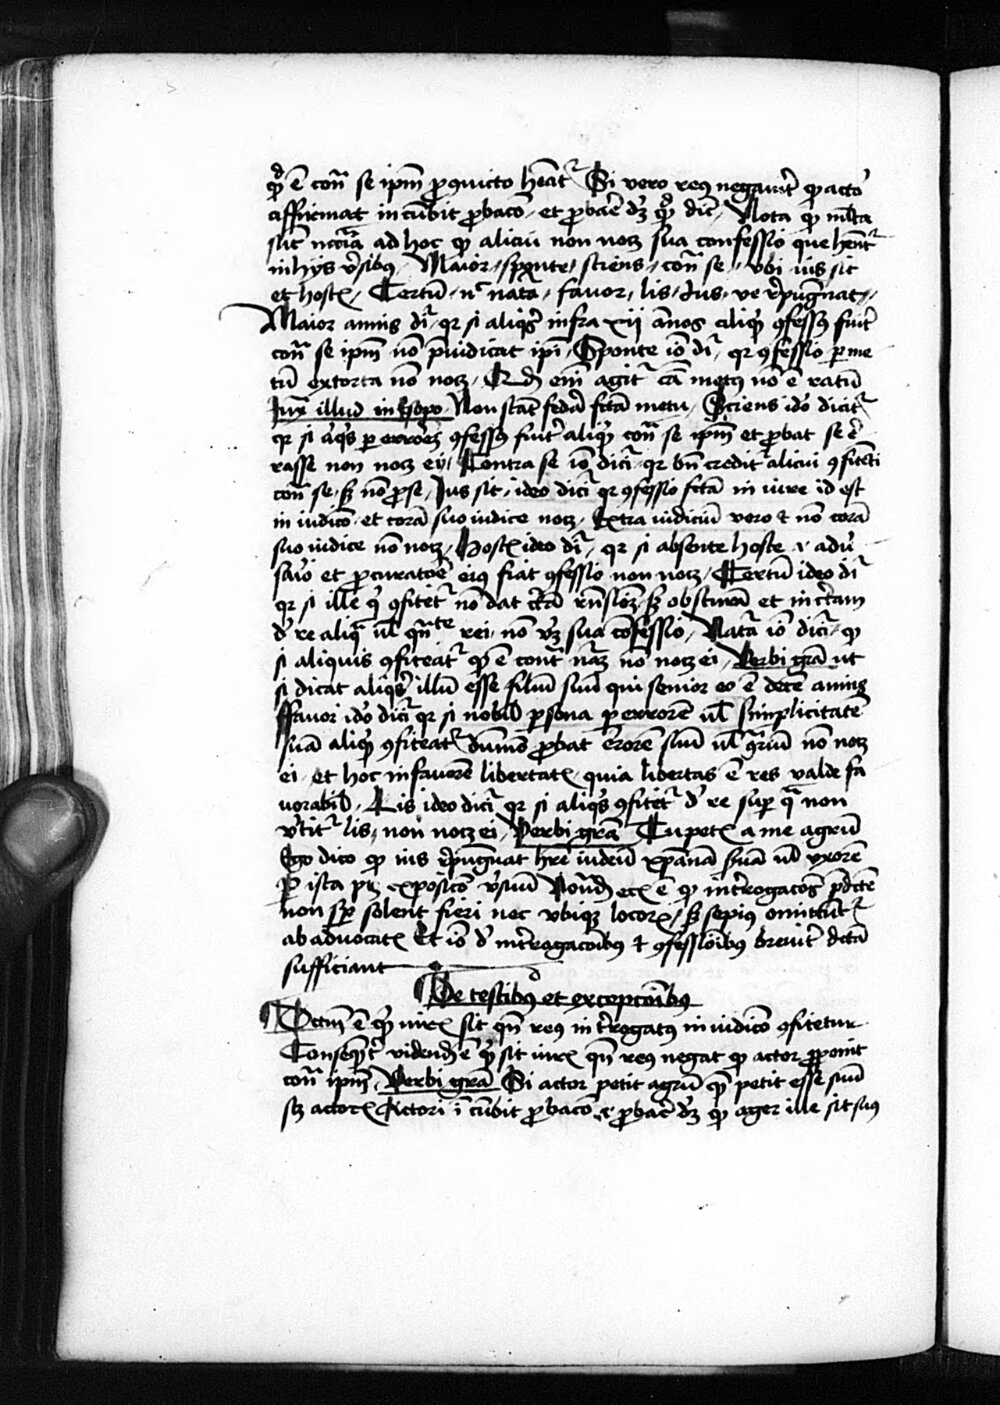 qd̾ ē cont̄ se ip̄m p̄ ꝯuicto hēat᷑ Si vero reus negauit̾ qd̾ acto᷑
affirmat incūbit ꝓbacō et ꝓbaē dꝫ qd̾ dic̄ Nota qd̾ ml̄ta
sūt nccīa ad hoc qd̾ alicui non noꝫ sua confessio que hent᷑
in hijs v̾sibus Maior sponte sciens cont̄ se vbi ius sit
et hostꝭ Certū nc̾ nat̾a fauor lis Ius ve r̾pugnat
Maior annis dr̄ qr si aliqs̾ infra xii annos aliqd̾ ꝯfessus fuit̾
cont̄ se ip̄m nō p̄iudicat ip̄i Sponte iō dr̄ qr ꝯfessio p me
tū extorta nō noꝫ Qd̾ em̄ agit᷑ cā metus nō ē ratū
Iux̄ illud in Esopo Non stat fedā fctā metu Sciens idō dicit᷑
qr si aqs̾ p errorē ꝯfessus fuit̾ aliqd̾ cont̄ se ip̄m et ꝓbat se er
rasse non noꝫ ei Contra se iō dicit᷑ qr bn̄ credit᷑ alicui ꝯfitenti
cont̄ se sꝫ nō ꝓ se Ius sit ideo dicit᷑ qr ꝯfessio fctā in iure id est
in iudico et corā suo iudice noꝫ Extra iudiciū vero et nō corā
suo iudice nō noꝫ Hostꝭ ideo dr̄ qr si absente hoste et adu̾
sario et ꝓcuratorē eius fiat ꝯfessio non noꝫ Certū ideo dr̄
qr si ille qi ꝯfitet᷑ nō dat c̾tā rn̄sionē sꝫ obscurā et inc̾tam
d̾ re aliqa vl̄ qn̄tte rei nō vꝫ sua cōfessio Nat̾a iō dicit᷑ qd̾
si aliquis ꝯfiteat᷑ qd̾ ē cont̄ nāꝫ nō noꝫ ei Verbi grā vt
si dicat aliqs̾ illū esse filiū suū qui senior eo ē decē annis
ffauor idō dicit᷑ qr si nobil̄ psona p errorē vl̄ simplicitatē
suā aliqd̾ ꝯfiteat᷑ dūmō ꝓbat errorē suū nō noꝫ
ei et hoc in fauorē libertatꝭ quia libertas ē res valde fa
uorabil̄ Lis ideo dicit᷑ qr si aliqs̾ ꝯfitet᷑ d̾ re sup qa non
v̾tit᷑ lis non noꝫ ei Verbi grā Tu petꝭ a me agrū
Ego dico qd̾ ius r̾pugnat hr̄e iudeū xp̄ianā suā vl̄ vxorē
P ista pꝫ expositō v̾suū Notād̾ ē qd̾ int̾rogacōs p̄dctē
non sp̄ solent fieri nec vbiqꝫ locorꝭ sꝫ sepius omittunt᷑
ab aduocatꝭ Et iō d̾ int̾rogacōibus et ꝯfessiōibus breuit̾ dctā
sufficiant
De testibus et excepcōibus
Dictum ē qd̾ iurꝭ sit qn̄ reus int̾rogatus in iudicō ꝯfitetur
Conseqn̄t̾ vidend̾ ē qd̾ sit iurꝭ qn̄ reus negat qd̾ actor ꝓponit
cont̄ ipm̄ Verbi grā Si actor petit agrū qm̄ petit esse suū
sꝫ actorꝭ Actori īcūbit ꝓbacō et ꝓbaē dꝫ qd̾ ager ille sit suus